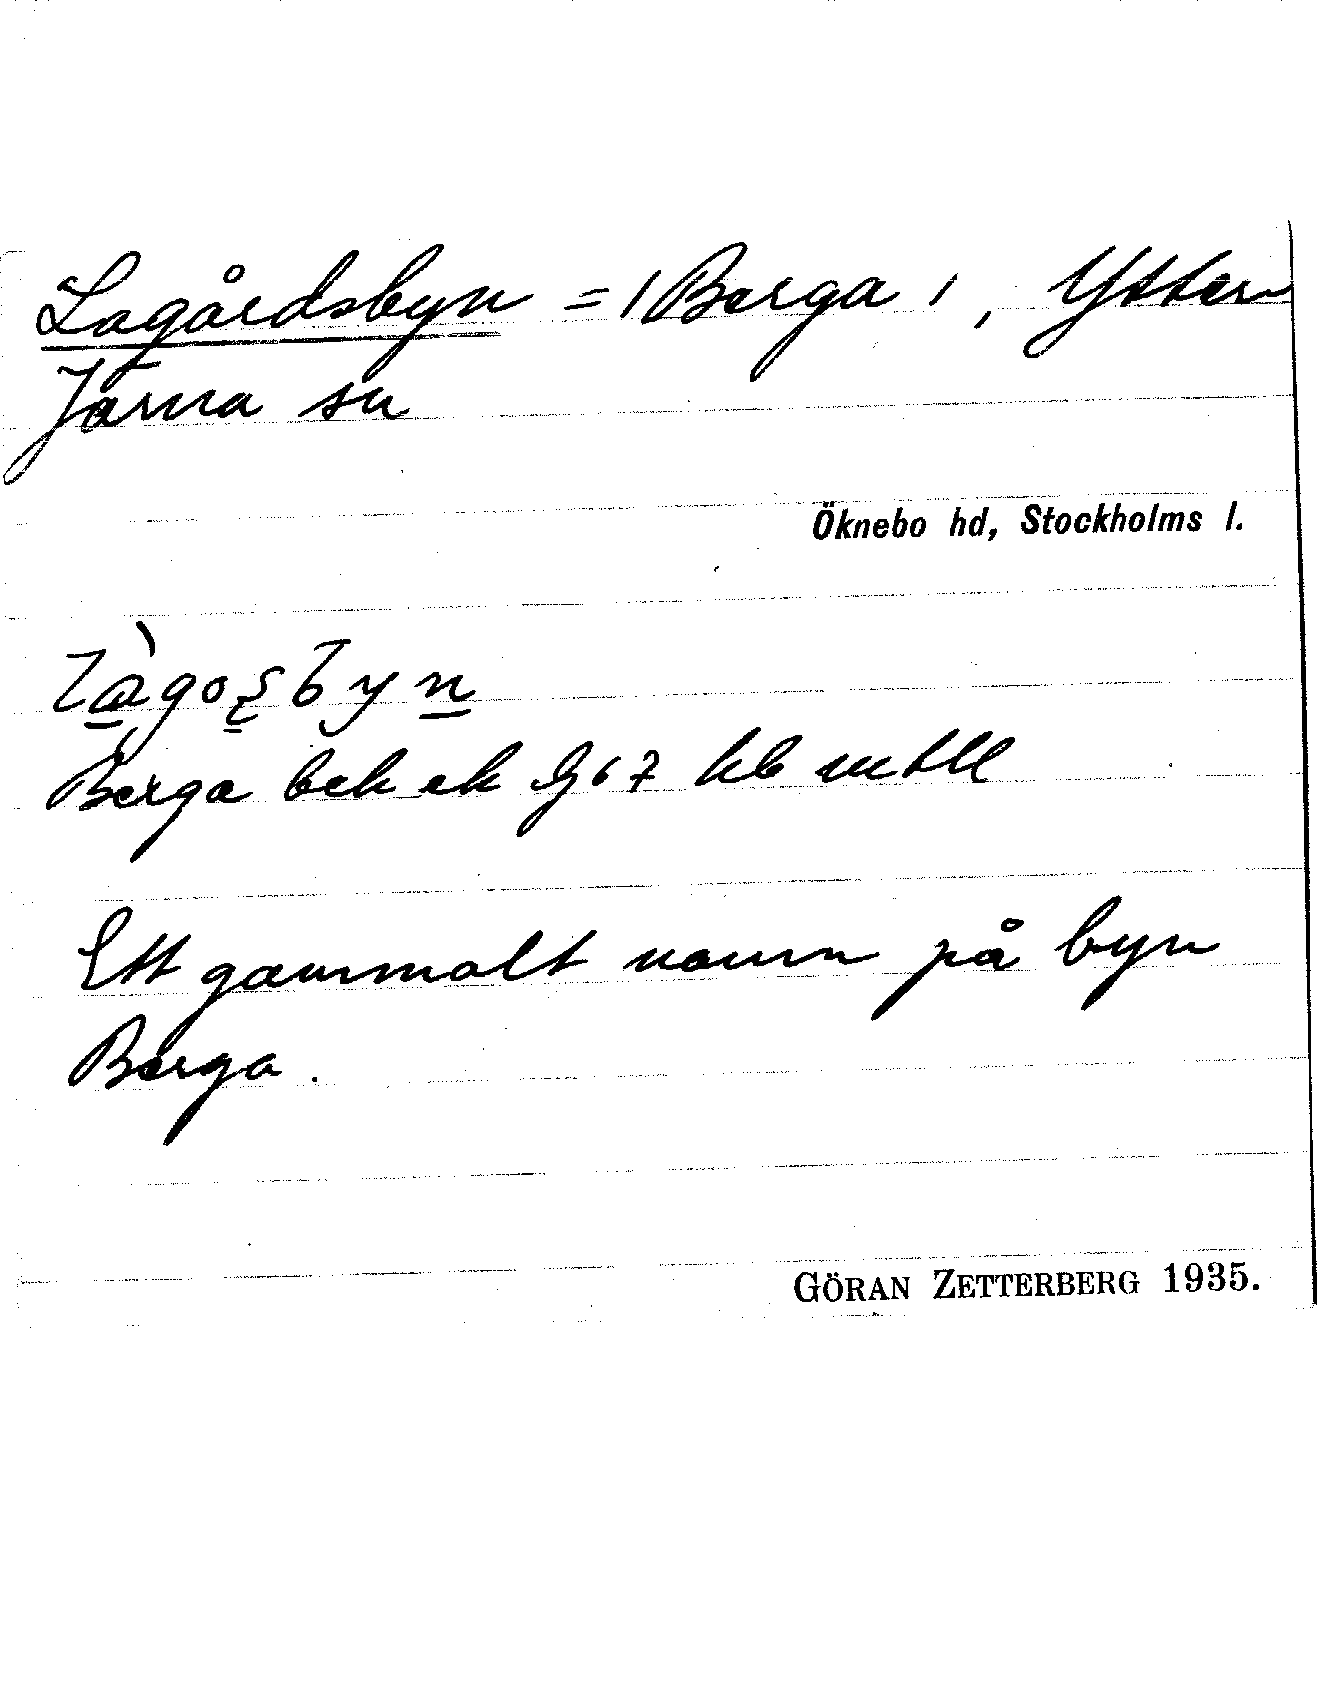 Lagårdsbyn = /Berga /, Ytter
Järna sn
Öknebo hd, Stockholms l.
làgoʂbyn
Berga bek ek 967 hb
Ett gammalt namn på byn
Berga.
GÖRAN ZETTERBERG 1935.